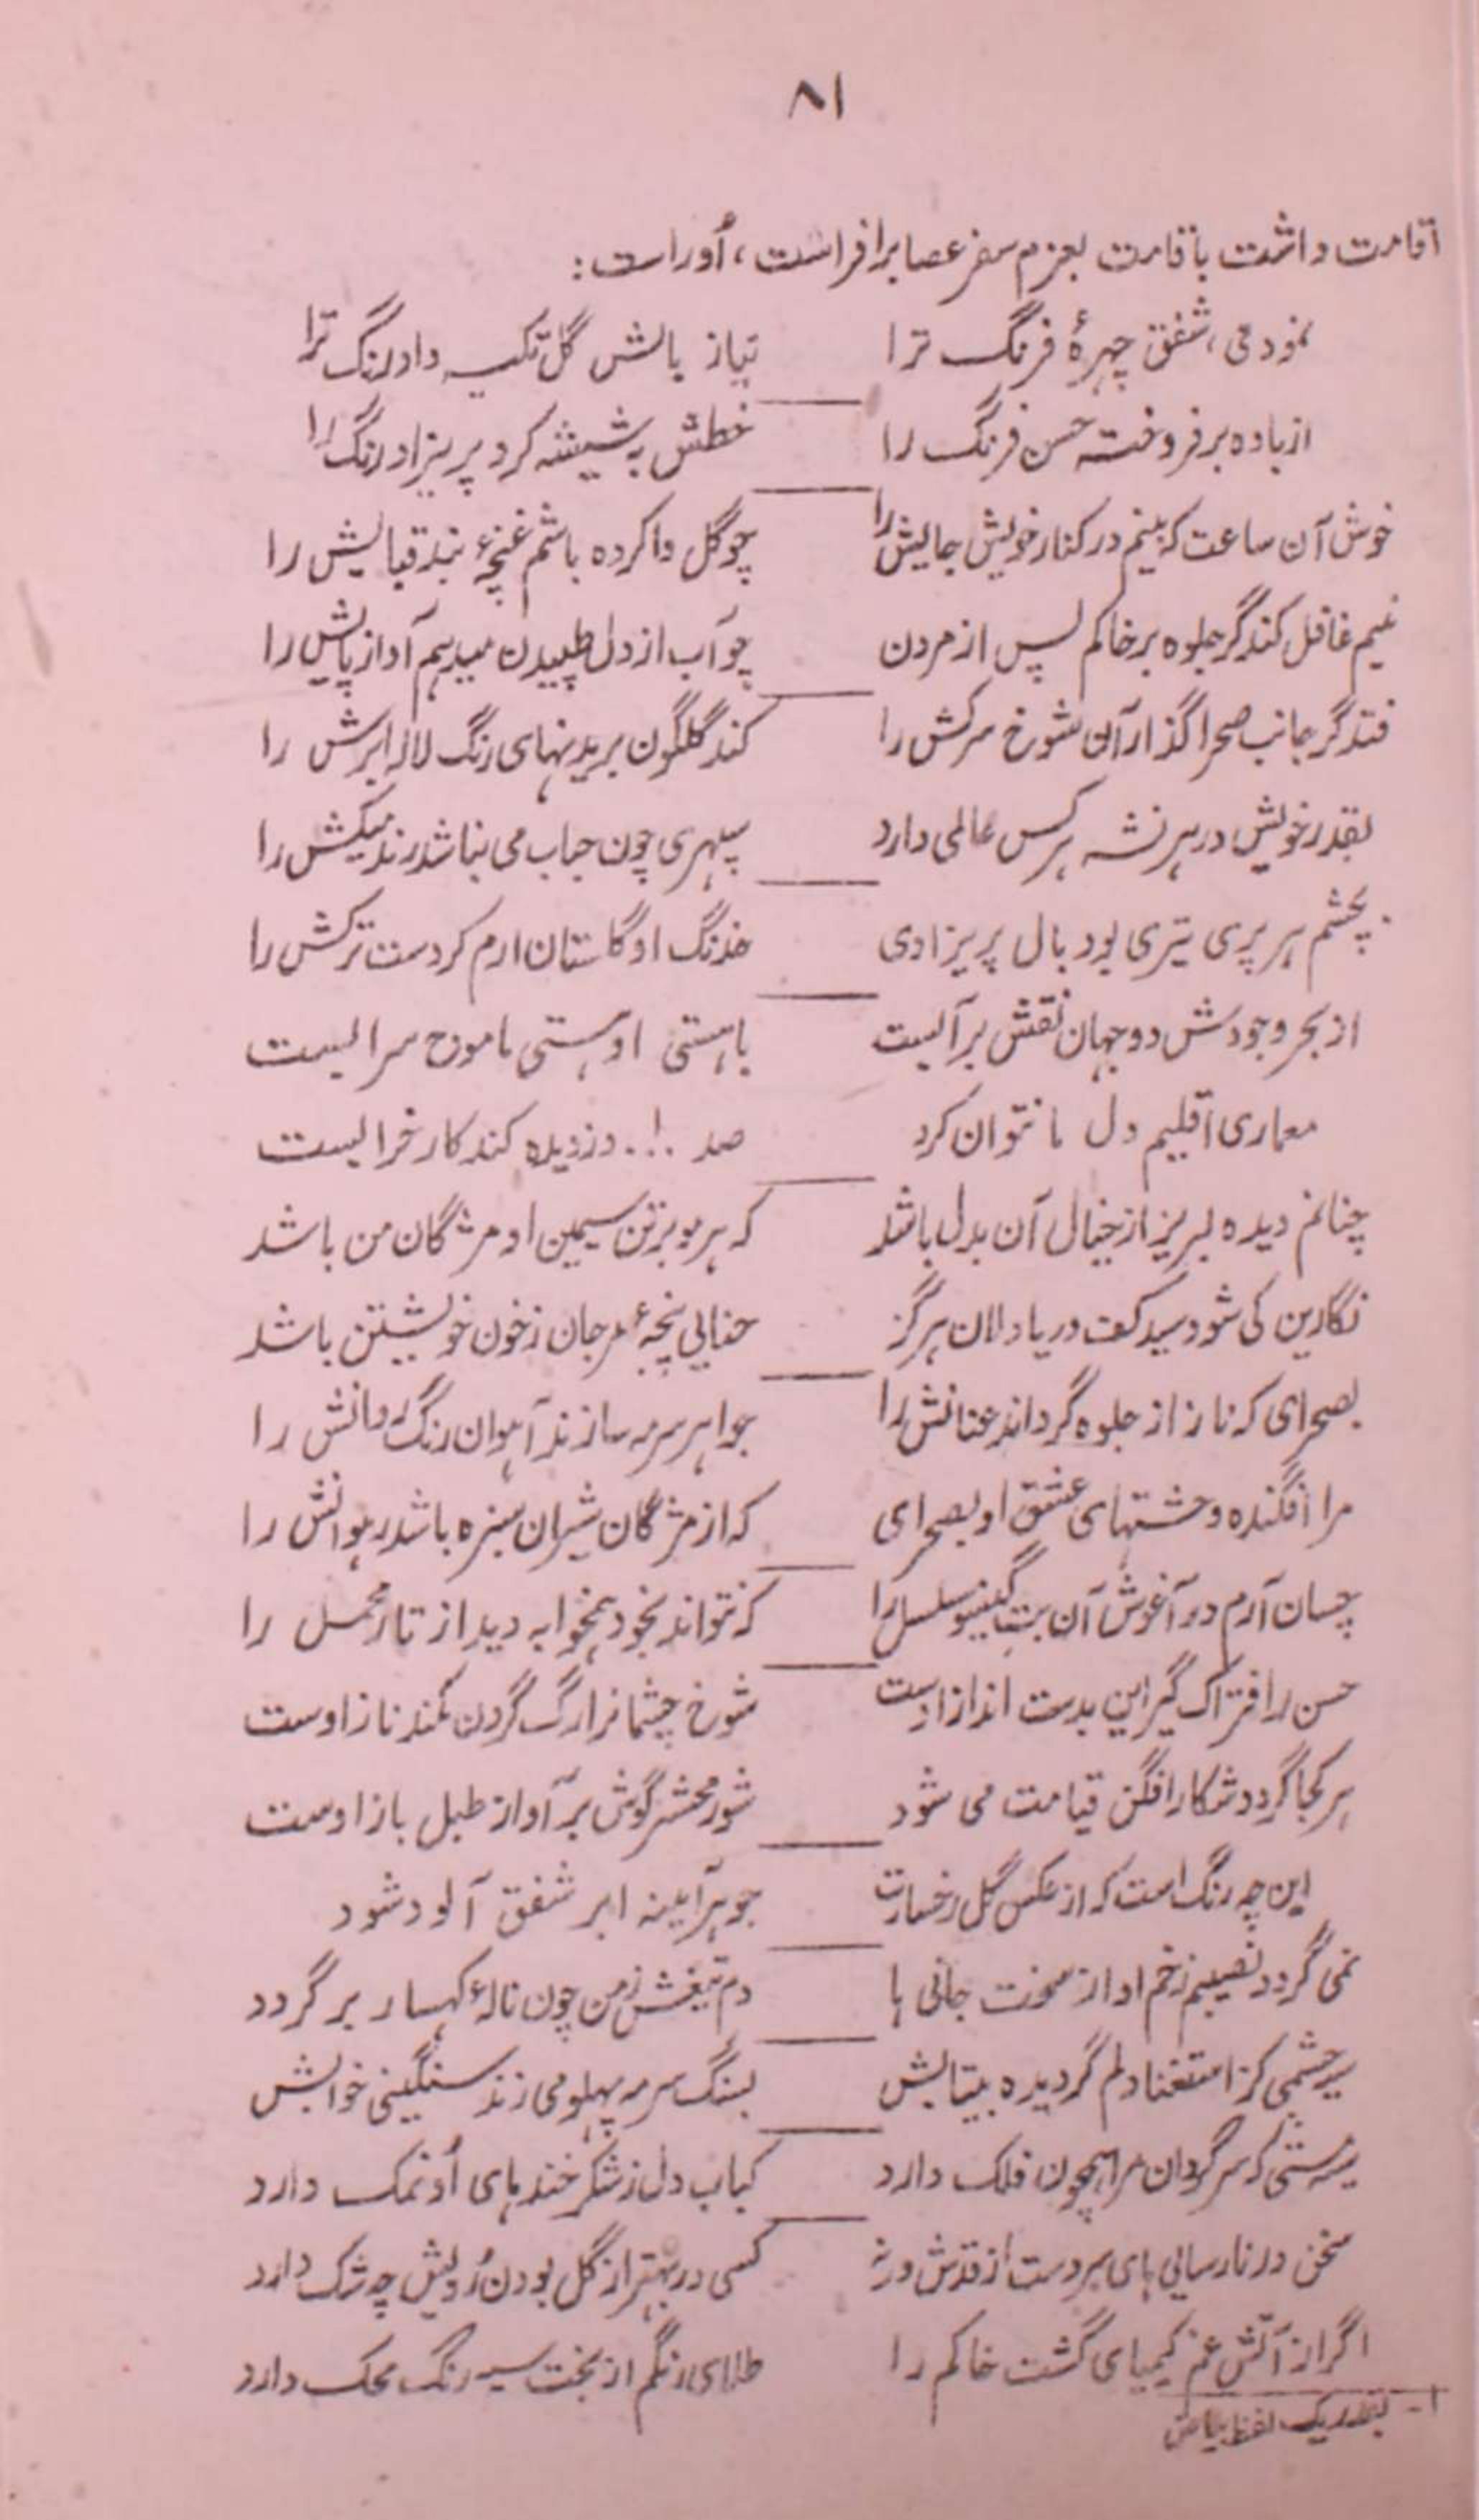 ۸۱
اقامت داشت باقامت بعزم سفر عصا برافراشت، اُوراست:
نمود می، شفق چهرهٔ فرنگ ترا نیاز بالش گل تکیه داد رنگ ترا
از باده برفروخته حسن فرنگ را خطش به شیشه کرد پریزاد رنگ را
خوش آن ساعت که بینم در کنار خویش جایش را چو گل وا کرده باشم غنچهٔ بند قبایش را
نیم غافل کند گر جلوه بر خاکم پس از مردن چو آب از دل طپیدن میدهم آواز پایش را
فتد گر جانب صحرا گذار آن شوخ سرکش را کند گلگون بریدنهای رنگ لاله ابرش را
بقدر خویش در هر نشه هر کس عالمی دارد سپهری چون حباب می نباشد رند میکش را
بچشم هر پری تیری بود بال پریزادی خدنگ او گلستان ارم کردست ترکش را
از بحر وجودش دو جهان نقش بر آبیست با هستی او هستی ما موج سرابیست
معماری اقلیم دل ما نتوان کرد صد .!. دزدیده کند کار خرابیست
چنانم دیده لبریز از خیال آن بدل باشد که هر مو بر تن سیمین او مژگان من باشد
نگارین کی شود سید کف دریا دلان هرگز حنایی پنجهٔ مرجان ز خون خویشتن باشد
بصحرای که ناز از جلوه گرداند عنانش را جواهر سرمه سازند آهوان رنگ روانش را
مرا افگنده وحشتهای عشق او بصحرای که از مژگان شیران سبزه باشد رهوانش را
چسان آرم در آغوش آن بت گیسو سلسل را که نتواند بخود همخوابه دید از تار مخمل را
حسن را فتراک گیرایی بدست انداز اوست شوخ چشمانرا رگ گردن کمند ناز اوست
هر کجا گردد شکار افگن قیامت می شود شور محشر گوش بر آواز طبل باز اوست
این چه رنگ است که از عکس گل رخسارت جوهر آیینه ابر شفق آلود شود
نمی گردد نصیبم زخم او از سخت جانی ها دم تیغش ز من چون نالهٔ کهسار برگردد
سیه چشمی کز استغنا دلم گردیده بیتابش بسنگ سرمه پهلو می زند سنگینی خوابش
سرگردان مرا همچون فلک دارد کباب دل ز شکر خندهای اُو نمک دارد
سخن در نارسایی های سروست از قدش ورنه کسی در بهتر از گل بودن رویش چه شک دارد
اگر از آتش غم کیمیای گشت خاکم را طلای رنگم از بخت سیه رنگ محک دارد
۱- بقدر یک لفظ بیاض